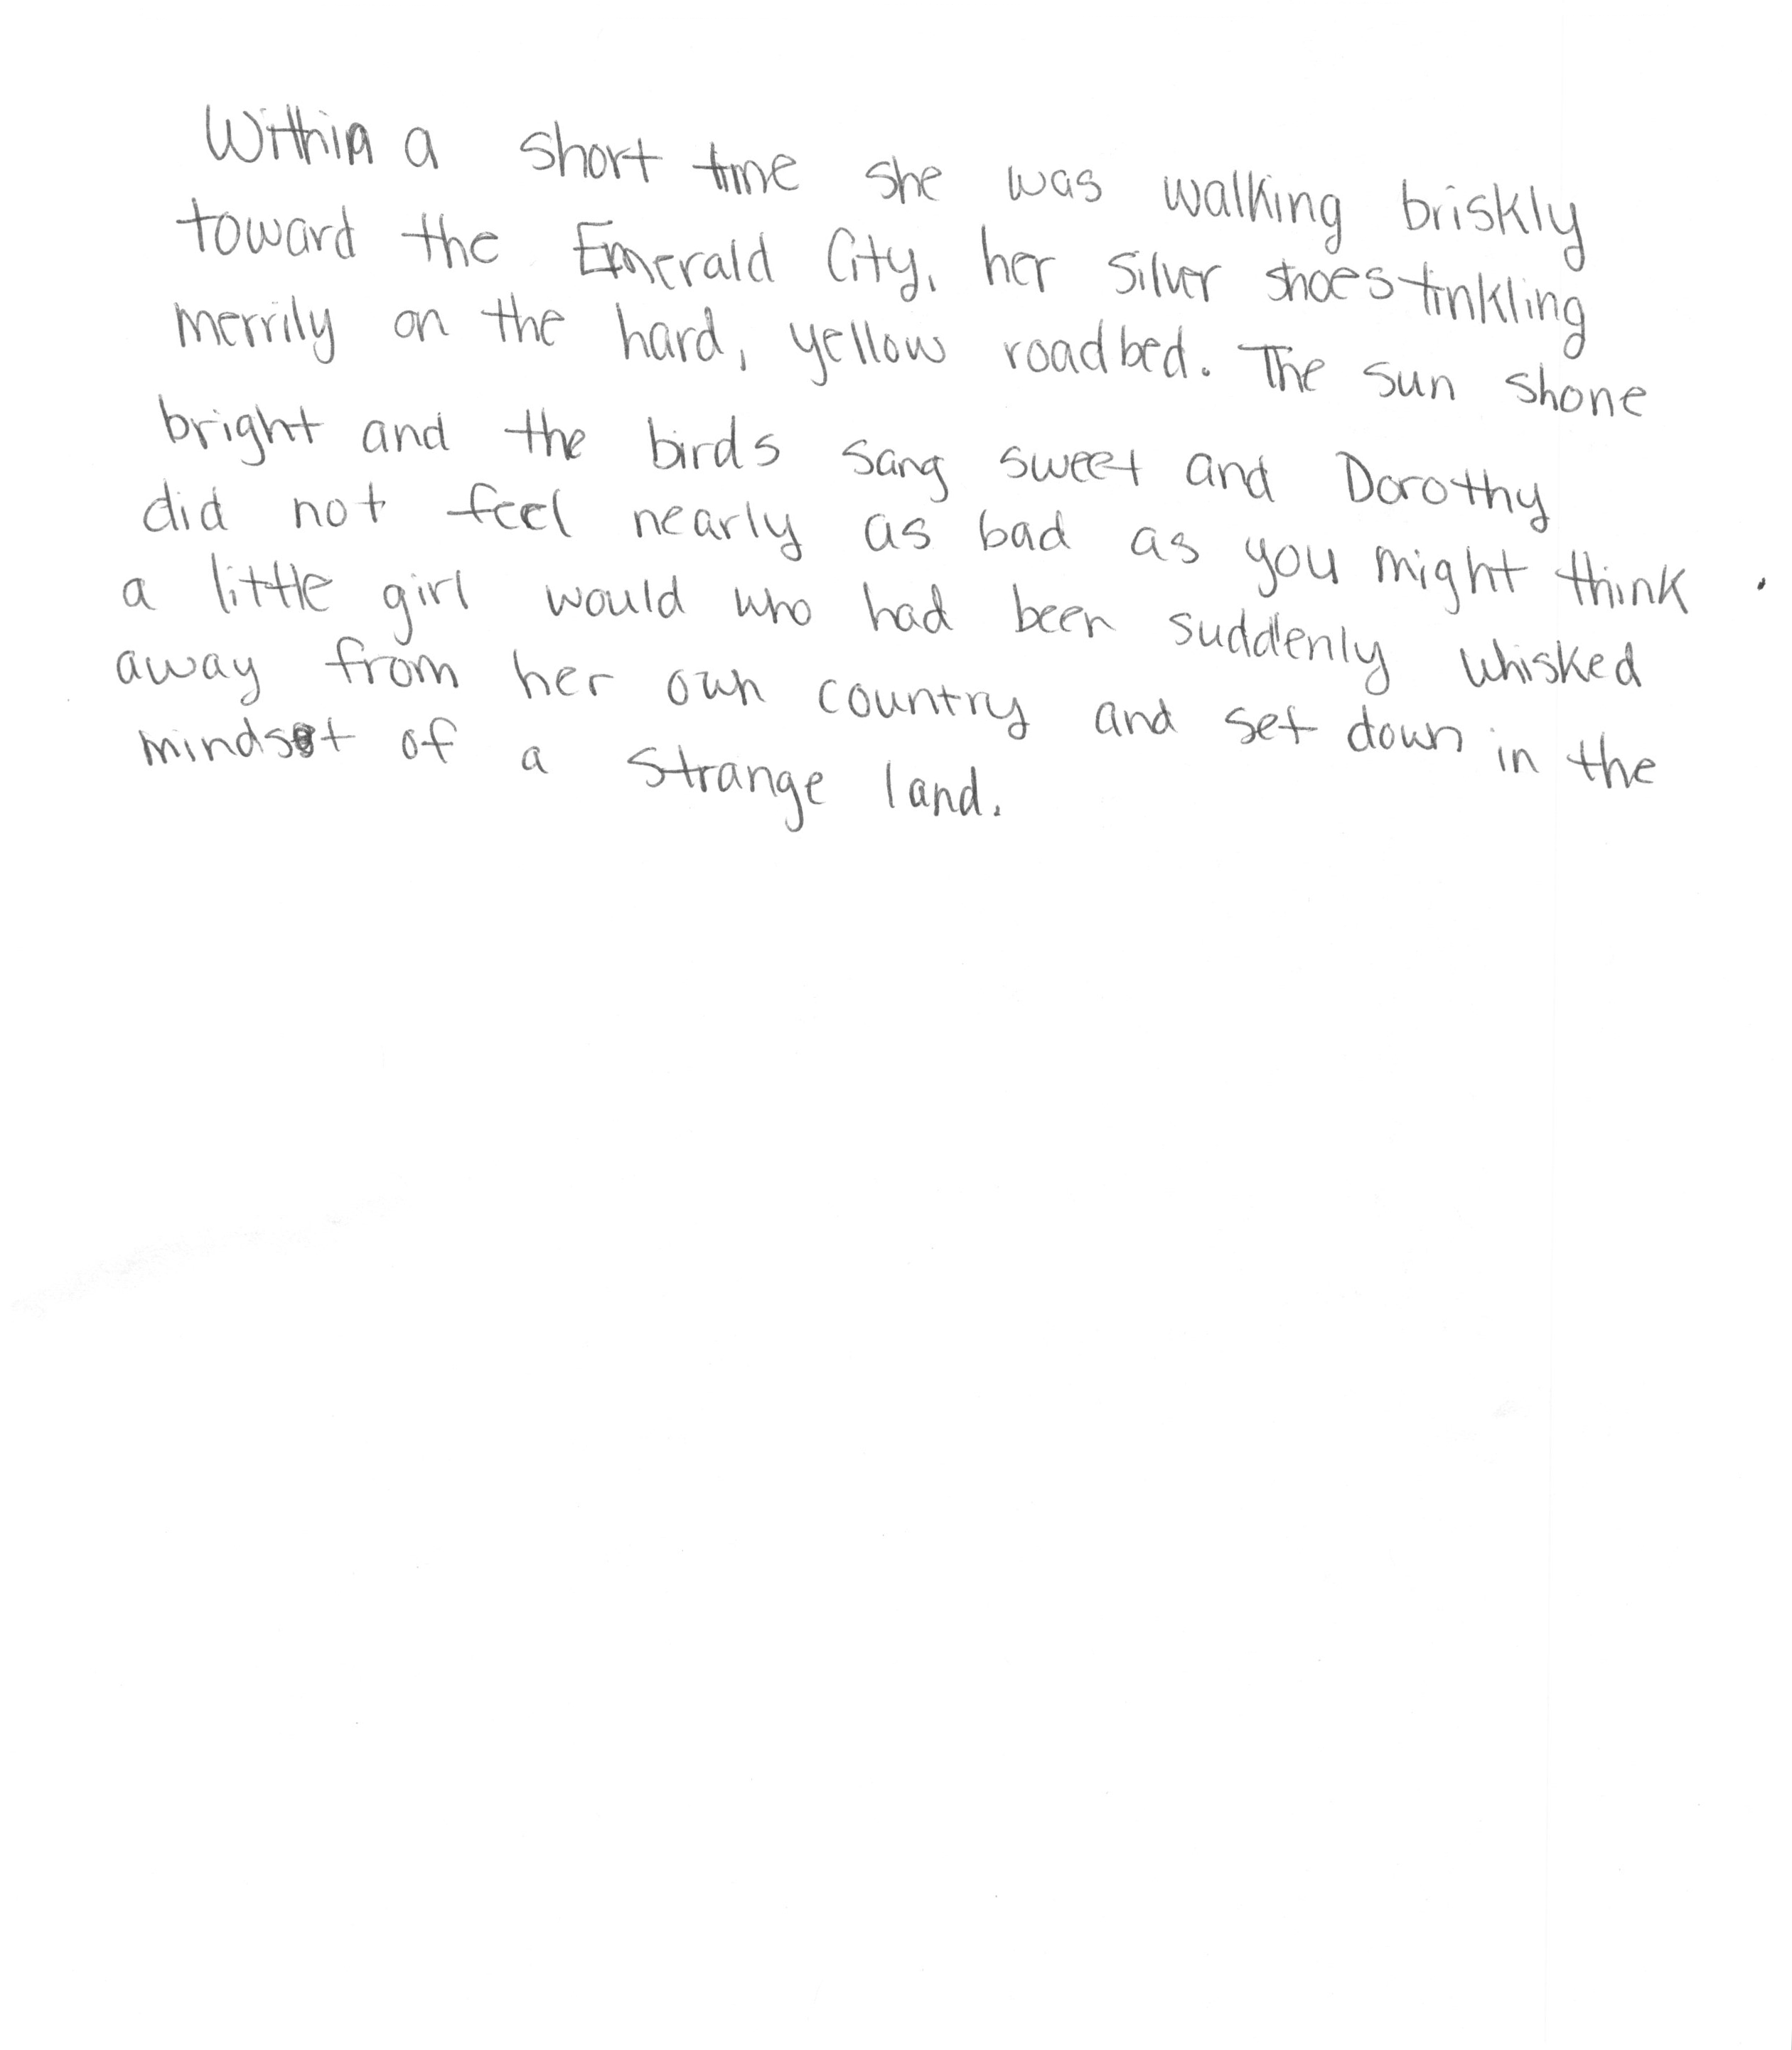 Within a short time she was walking briskly
toward the Emerald City, her silver shoes tinkling
merrily on the hard, yellow roadbed. The sun shone
bright and the birds sang sweet and Dorothy
did not feel nearly as bad as you might think
a little girl would who had been suddenly whisked
away from her own country and set down in the
mindset of a strange land.